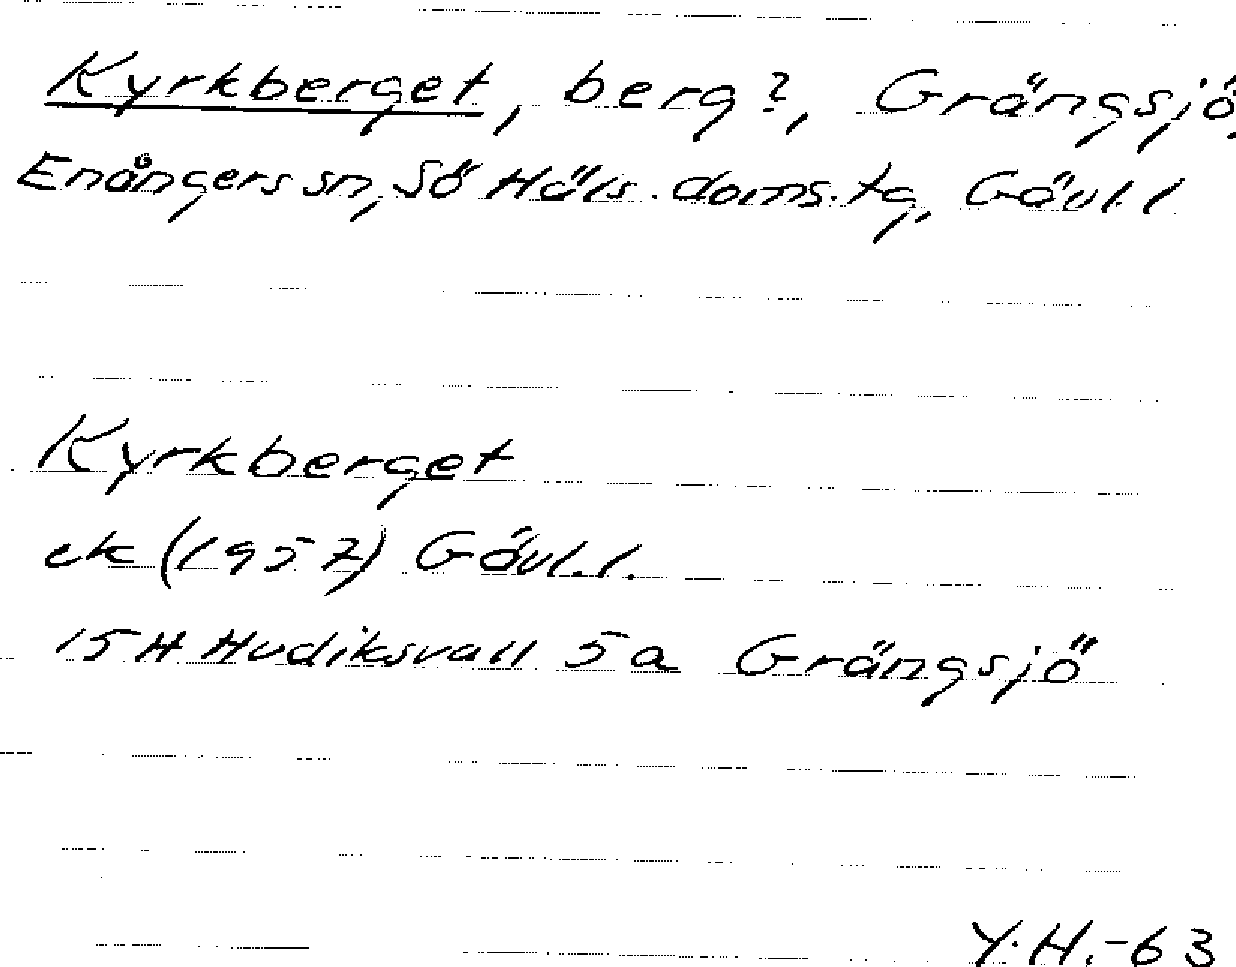 Kyrkberget, berg?, Grängsjö,
Enångers sn, Sö Häls. doms.tg, Gävl.l
Kyrkberget
ek (1957) Gävl.l.
15H Hudiksvall 5a Grängsjö
Y.H.-63